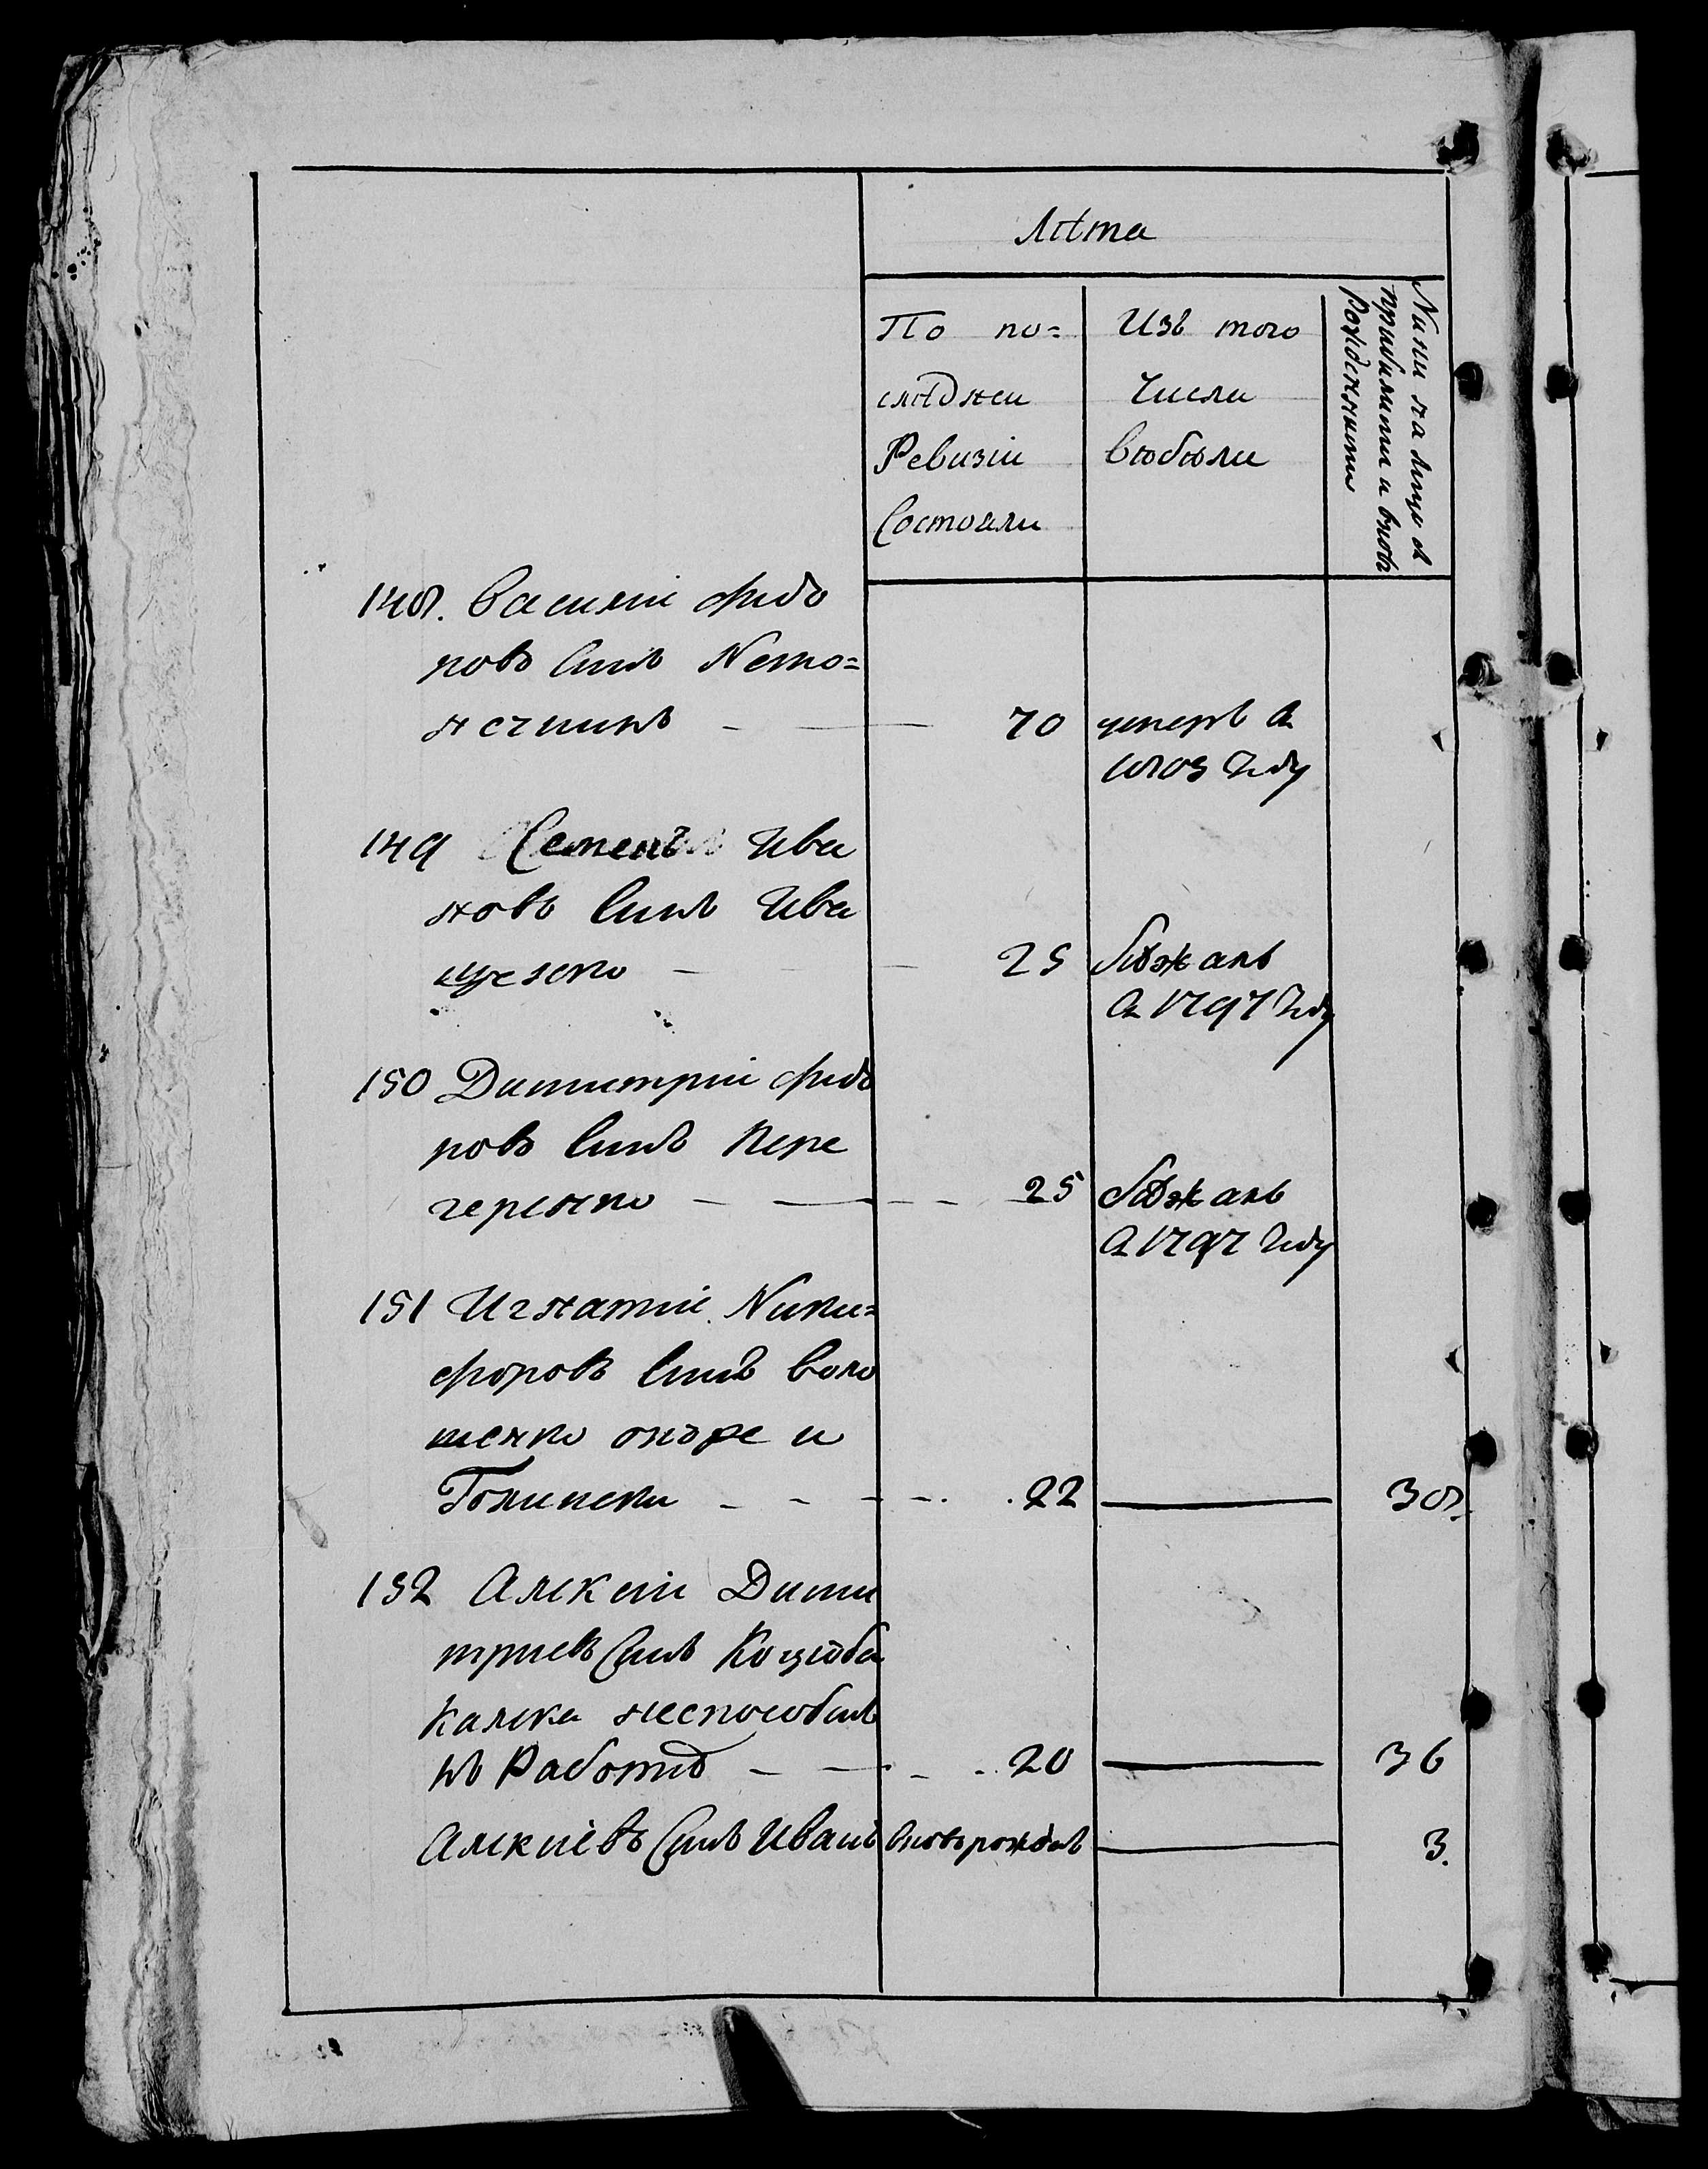 Лѣта
По по=
слѣднеи
Ревизіи
Состояли
Изъ того
Числа
выбыли
Нини на лицо съ
прибилими и вновь
Рожденними
148. Василій Федо
ровъ Синъ Нето=
нечникъ – — — 70 умеръ в
1803 Году
149 Семенъ Ива
новъ Синъ Ива
щенко — — — 25 Бѣжалъ
в 1797 Году
150 Димитрій Федо
ровъ Синъ Пере
гереенко — — - - 25 Бѣжалъ
в 1797 Году
151 Игнатій Ники=
форовъ Синъ Воло
шенко онже и
Голински — - - -. .22 — 38.
152 Алексій Дими
тріевъ Синъ Коцюба
Калека неспособенъ
къ Работѣ — — - - 20 — 36
Алексіевъ Синъ Иванъ вновьрожденъ — 3.